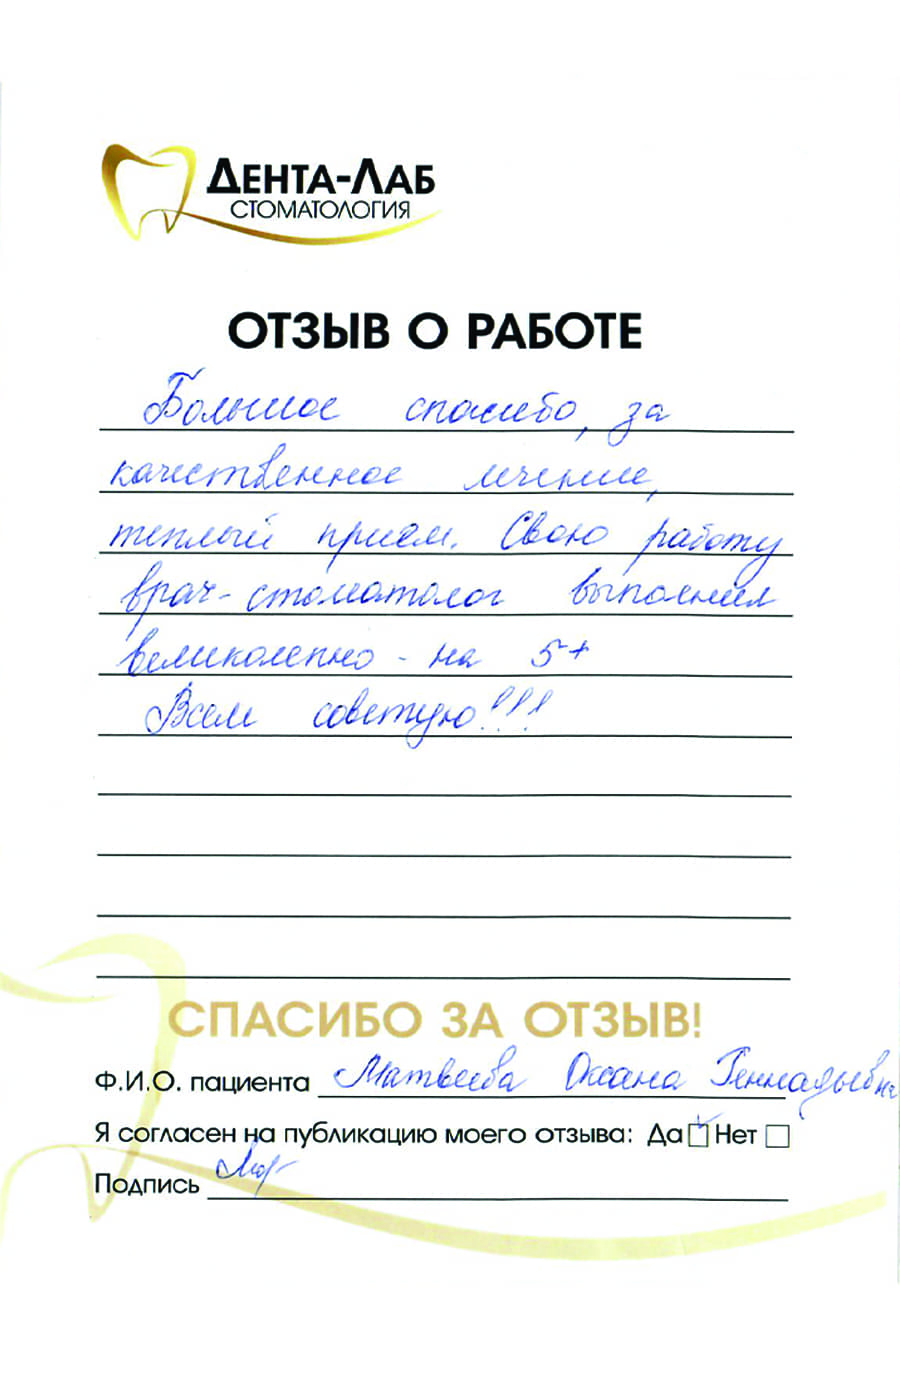 ДЕНТА-ЛАБ
СТОМАТОЛОГИЯ
ОТЗЫВ О РАБОТЕ
Большое спасибо, за
качественное лечение,
теплый приём. Свою работу
врач-стоматолог выполнил
великолепно - на 5+
Всем советую!!!
СПАСИБО ЗА ОТЗЫВ!
Ф.И.О. пациента Матвеева Оксана Геннадьевна
Я согласен на публикацию моего отзыва: Да Нет
Подпись